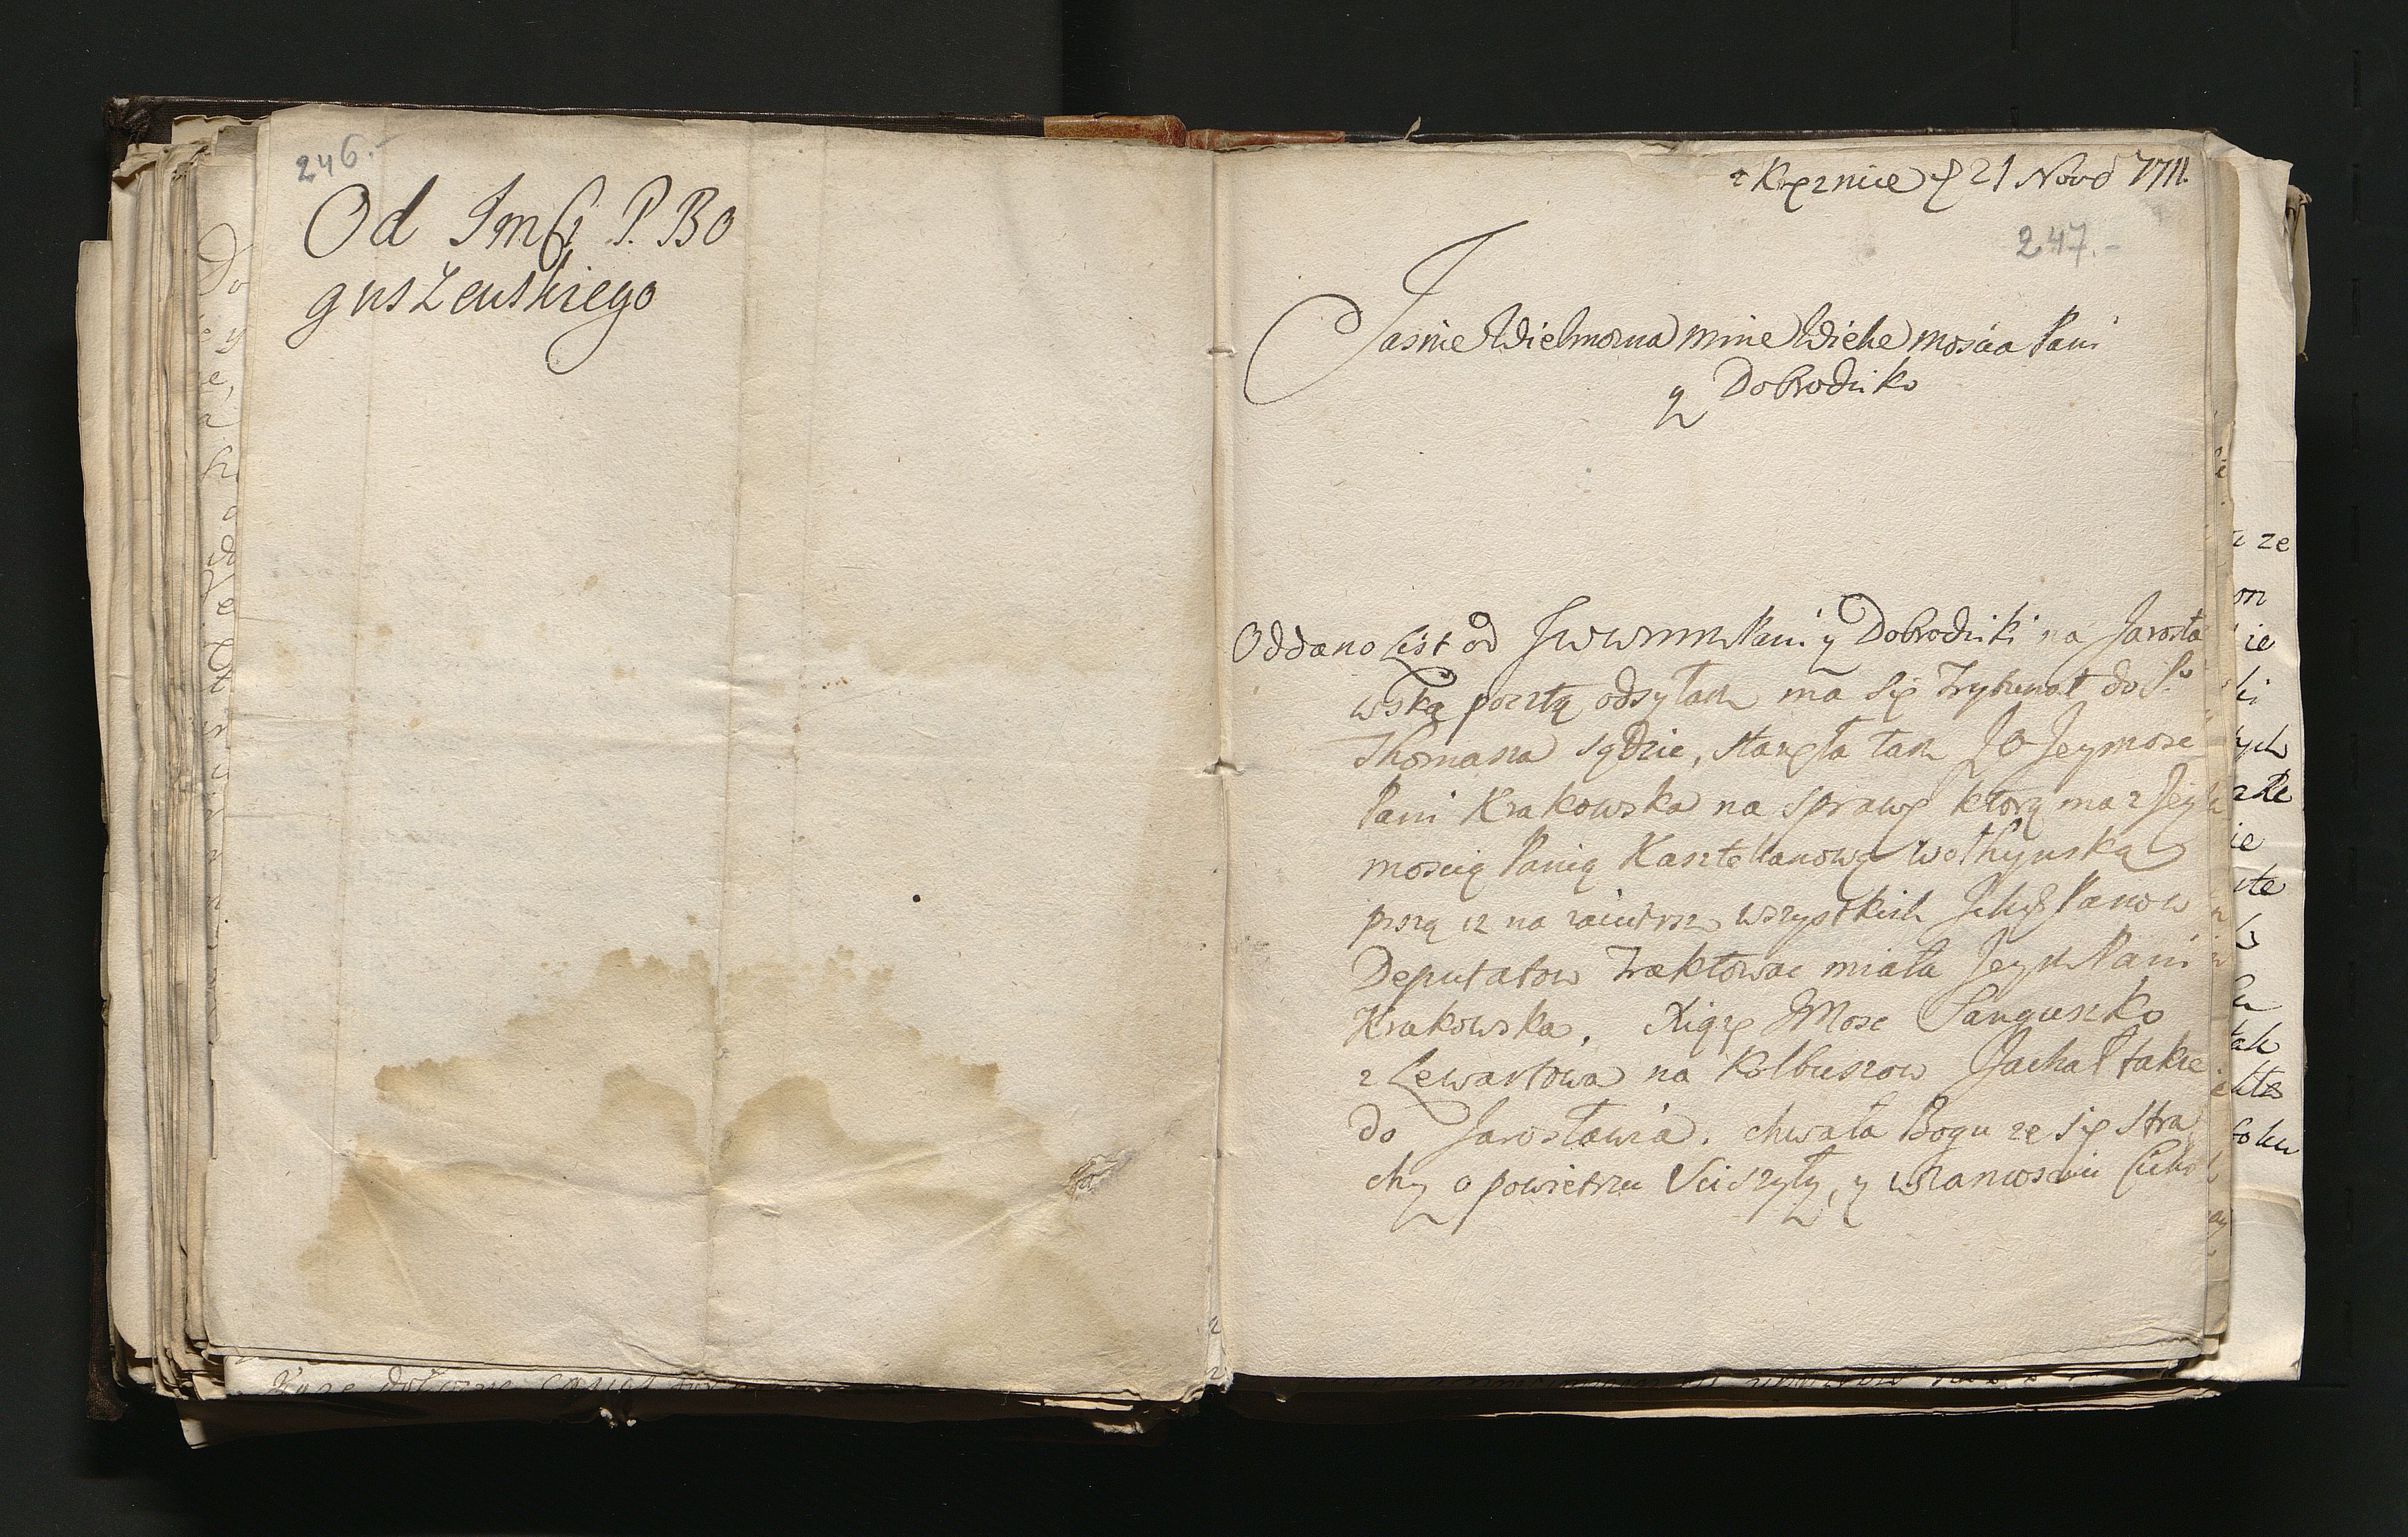 246.-
Od Jmść P. Bo
guszewskiego
z Kręznice d 21 Novb 1711.
247.-
Jasnie Wielmozna mnie Wielce Moscia Pani
y Dobrodziko
Oddano list od JWWMM Pani y Dobrodziki na Jarosła
wską pocztą odsyłam ma się Trybunał do S.o
Thomasza sądzic, stanęła tam JO Jeymosc
Pani Krakowska na sprawę ktorą ma z Jey
moscią Panią Kasztellanową Wołhynską
piszą iz na zaiutrz wszystkich Panow
Deputatow Traktowac miała Jey Pani
Krakowska. Xiąze JMosc Sanguszko
z Lewartowa na Kolbuszow Jachał takze
do Jarosławia. chwała Bogu ze się stra
chy o powietrzu Uciszyły, y w